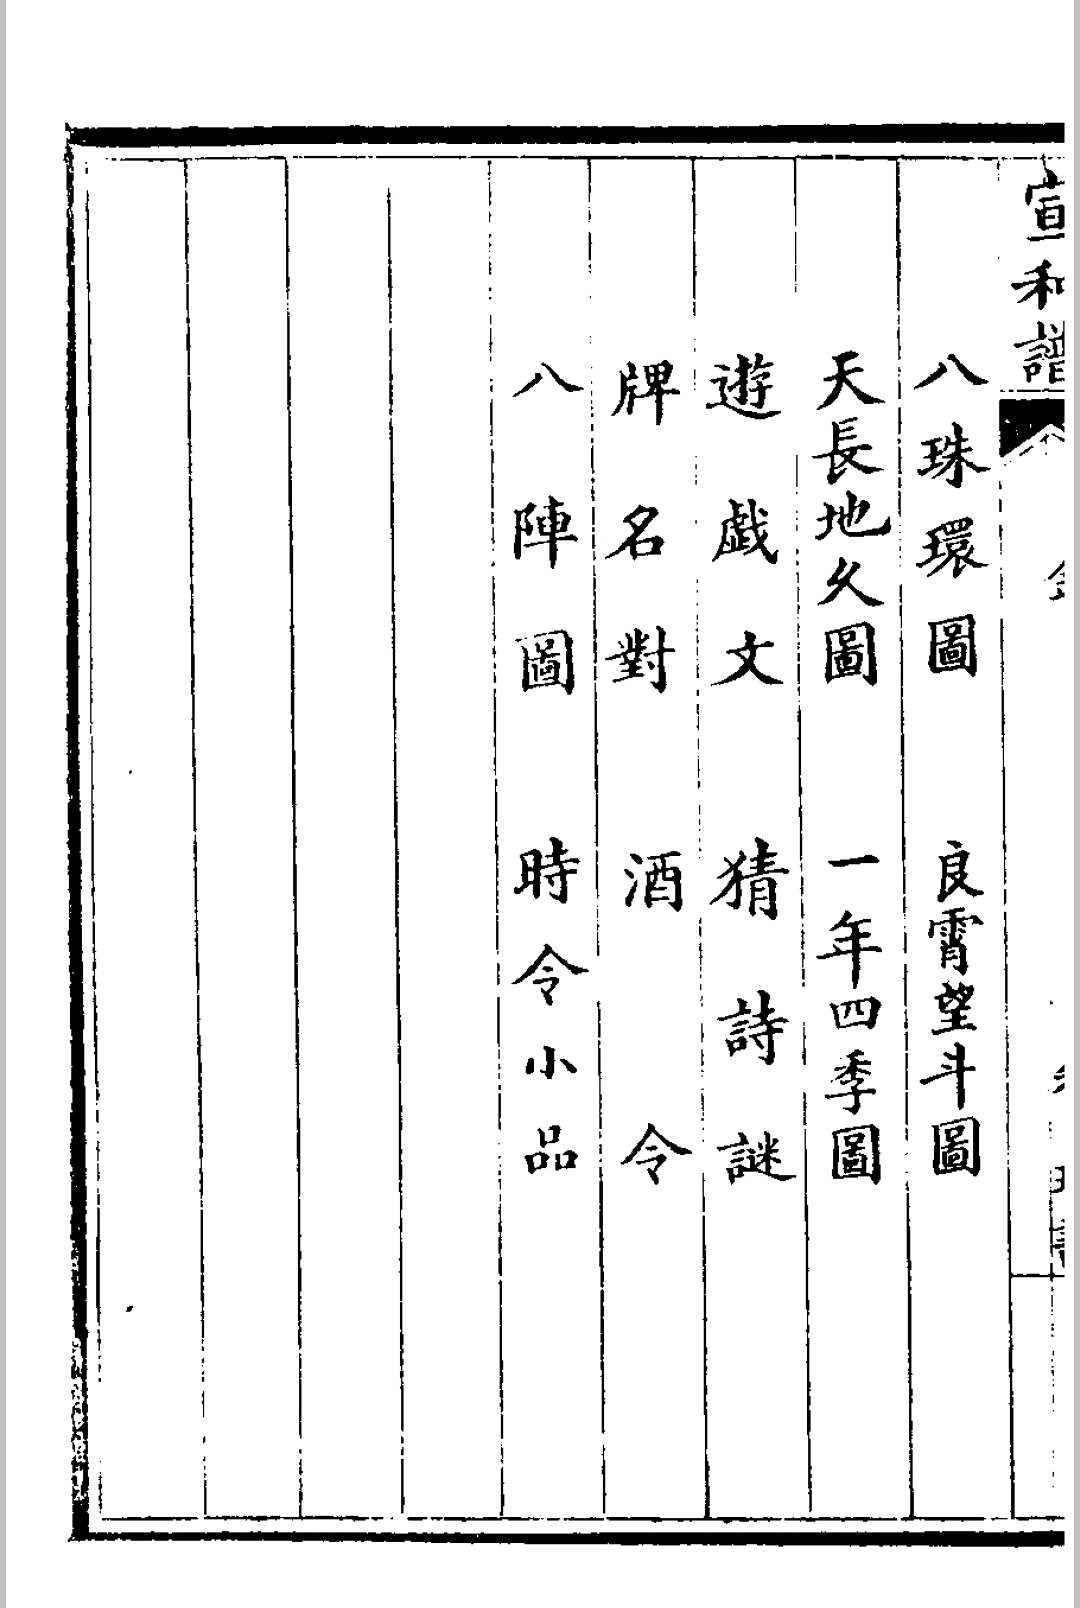 宣和譜
八珠環圖 良霄望斗圖
天長地久圖 一年四季圖
遊戲文 猜詩謎
牌名對 酒令
八陣圖 時令小品